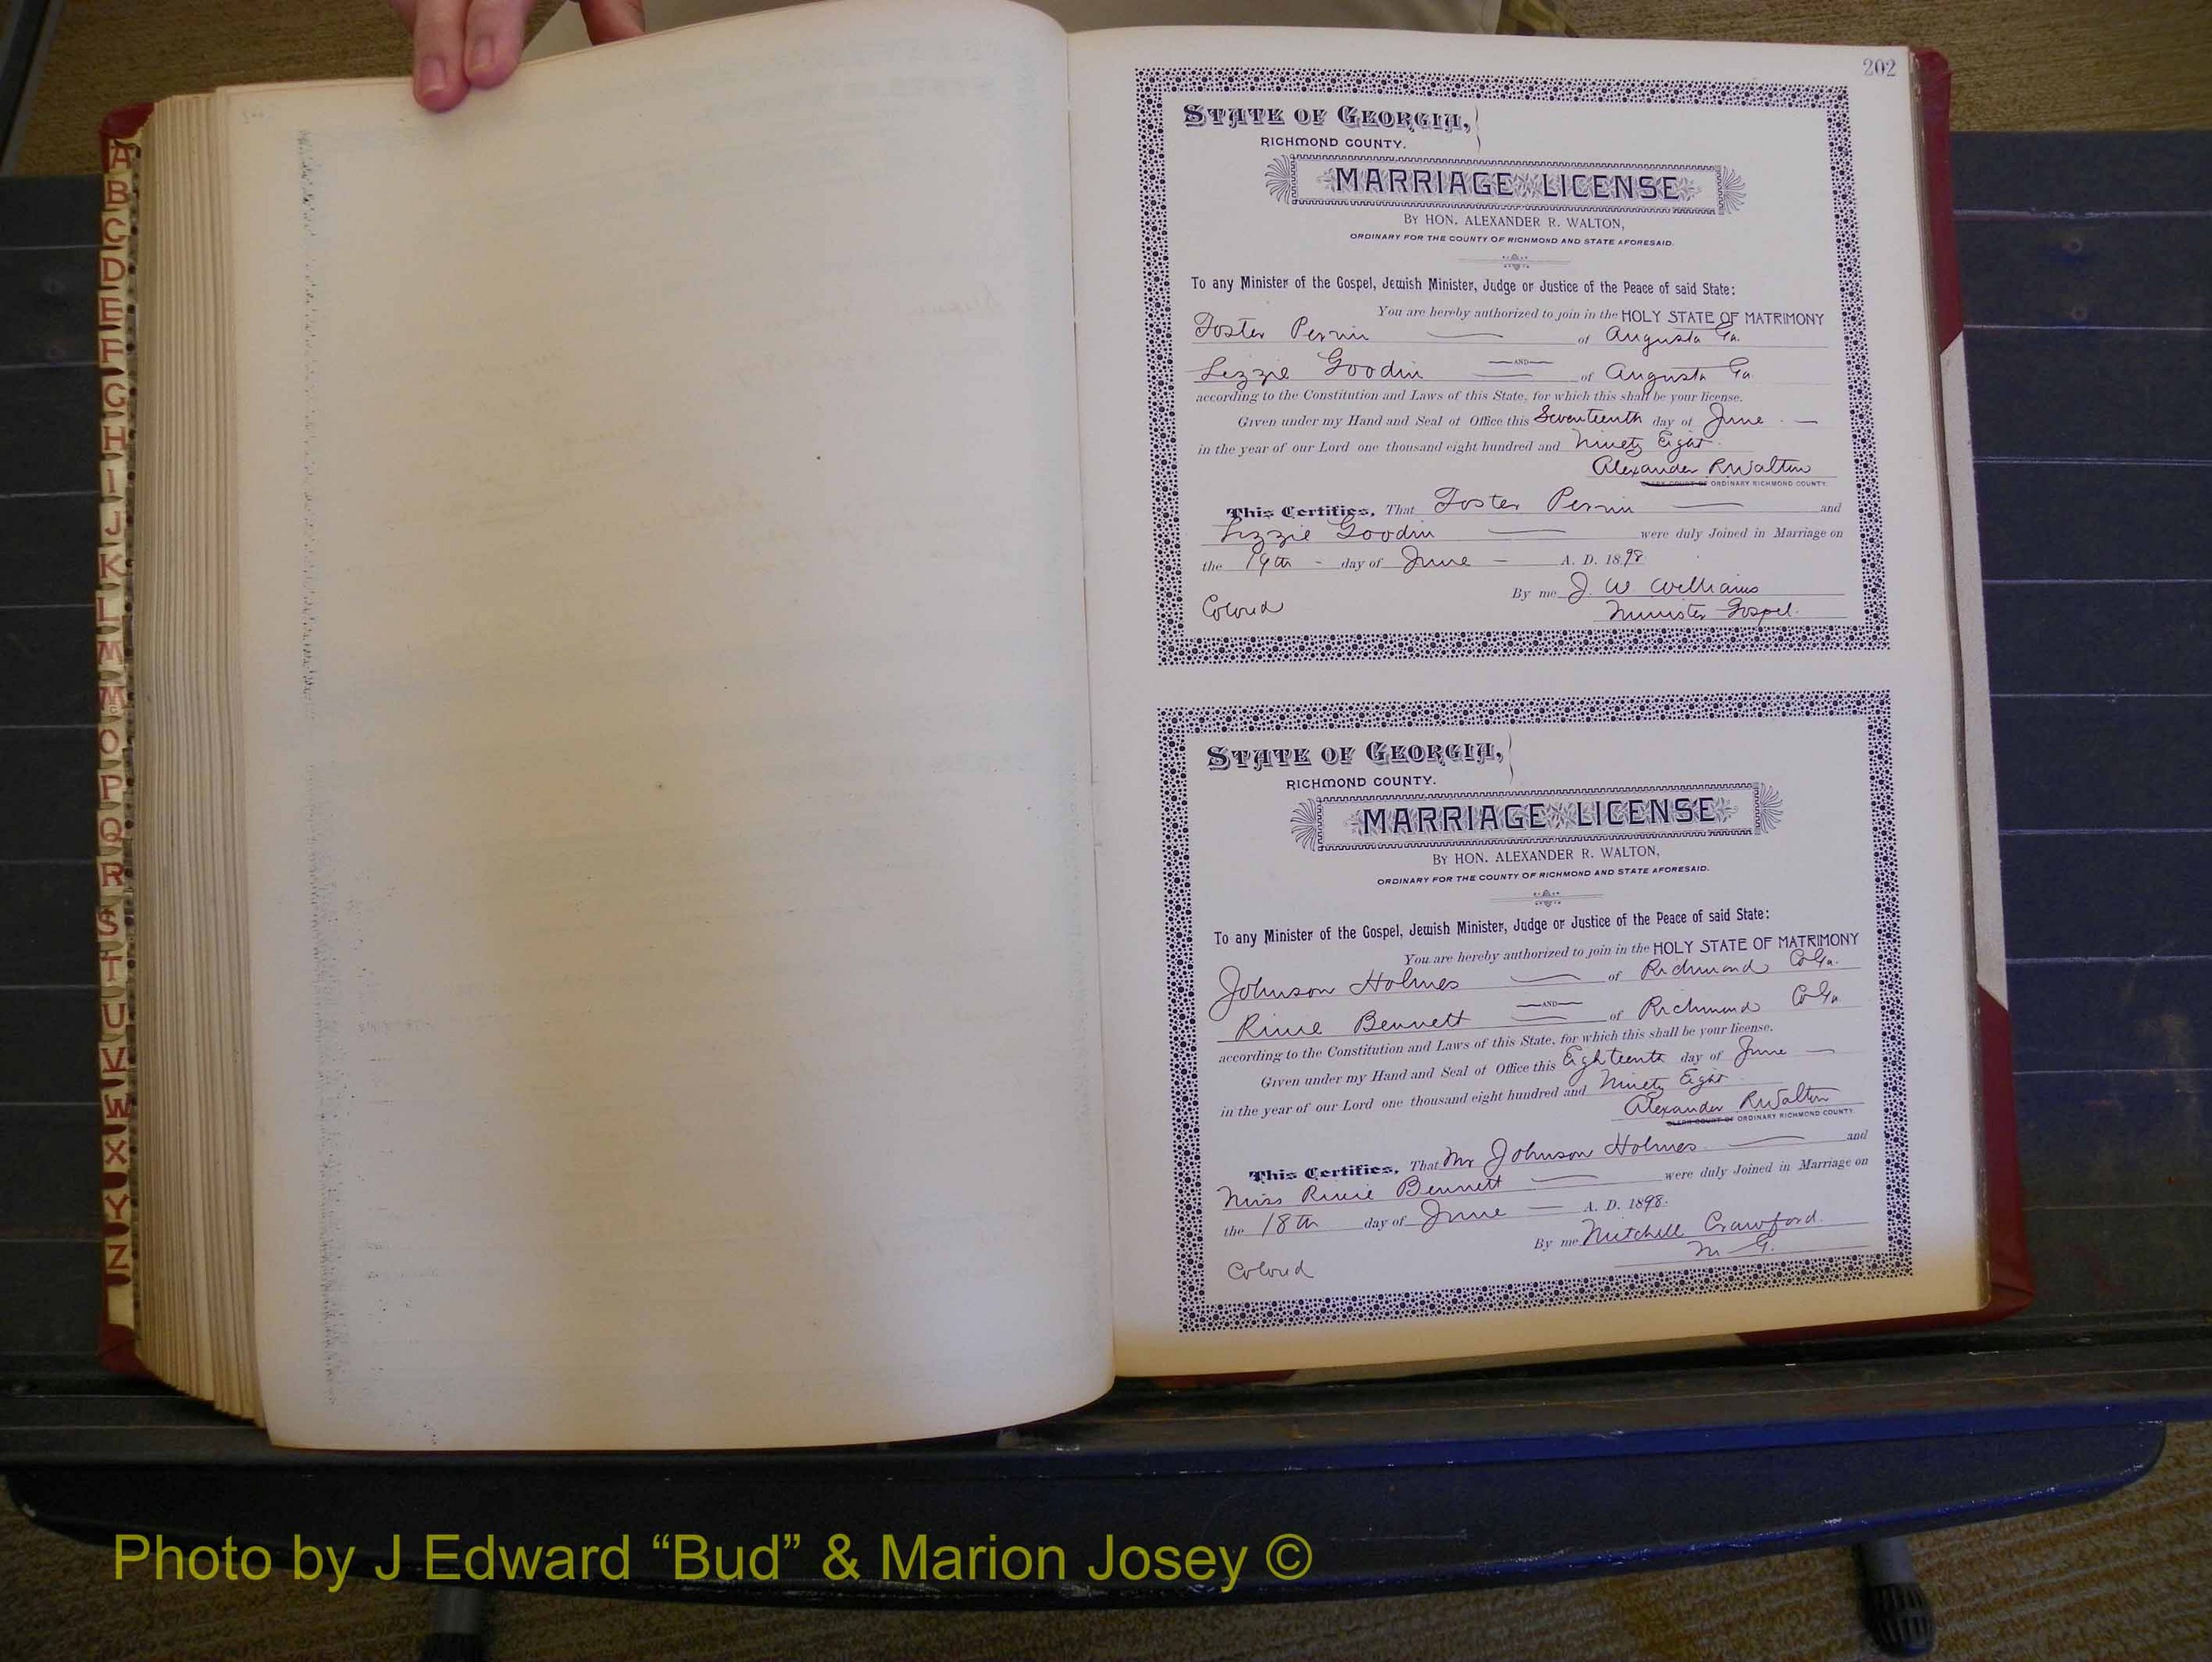 A
B
C
D
E
F
G
H
I
J
K
L
M
Mc
O
P
Q
R
S
T
U
V
W
X
Y
Z
202
STATE OF GEORGIA,
RICHMOND COUNTY.
MARRIAGE LICENSE
BY HON. ALEXANDER R. WALTON,
ORDINARY FOR THE COUNTY OF RICHMOND AND STATE AFORESAID.
To any Minister of the Gospel, Jewish Minister, Judge or Justice of the Peace of said State:
You are hereby authorized to join in the HOLY STATE OF MATRIMONY
Foster Perrin of Augusta Ga.
AND
Lizzie Goodin of Augusta Ga
according to the Constitution and Laws of this State, for which this shall be your license.
Given under my Hand and Seal of Office this Seventeenth day of June
in the year of our Lord one thousand eight hundred and Ninety Eight
Alexander R Walton
CLERK COURT OF ORDINARY RICHMOND COUNTY.
This Certifies, That Foster Perrin and
Lizzie Goodin were duly Joined in Marriage on
the 19th day of June A. D. 1898
By me J. W Williams
Colored Minister Gospel.
STATE OF GEORGIA,
RICHMOND COUNTY.
MARRIAGE LICENSE
BY HON. ALEXANDER R. WALTON,
ORDINARY FOR THE COUNTY OF RICHMOND AND STATE AFORESAID.
To any Minister of the Gospel, Jewish Minister, Judge or Justice of the Peace of said State:
You are hereby authorized to join in the HOLY STATE OF MATRIMONY
Johnson Holmes of Richmond Co Ga.
AND
Rinie Bennett of Richmond Co Ga
according to the Constitution and Laws of this State, for which this shall be your license.
Given under my Hand and Seal of Office this Eighteenth day of June
in the year of our Lord one thousand eight hundred and Ninety Eight
Alexander R Walton
CLERK COURT OF ORDINARY RICHMOND COUNTY.
This Certifies, That Mr Johnson Holmes and
Miss Rinie Bennett were duly Joined in Marriage on
the 18th day of June A. D. 1898.
By me Mitchell Crawford.
M G.
Colored
Photo by J Edward “Bud” & Marion Josey ©